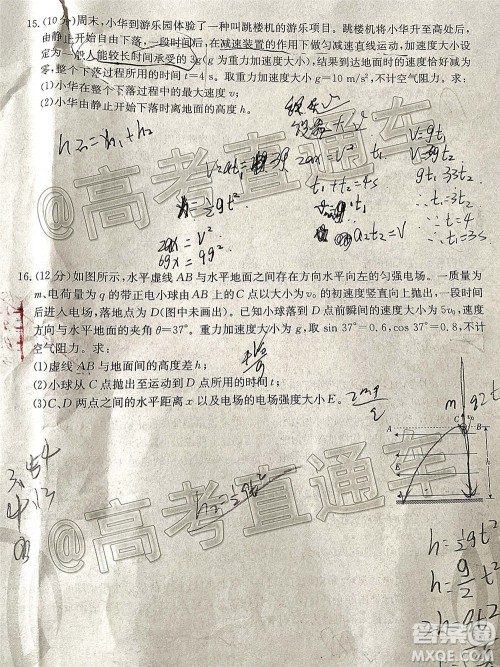 15.(10分)周末,小华到游乐园体验了一种叫跳楼机的游乐项目。跳楼机将小华升至高处后,
由静止开始自由下落,一段时间后,在减速装置的作用下做匀减速直线运动,加速度大小设
定为一般人能较长时间承受的3g(g为重力加速度大小),结果到达地面时的速度恰好为
零,整个下落过程所用的时间t=4 s。取重力加速度大小g=10 m/s²,不计空气阻力。求:
(1)小华在整个下落过程中的最大速度v;
(2)小华由静止开始下落时离地面的高度h。
2ax=V²
V=gt₁
V=3gt₂
t₁+t₂=4s
h=½gt²
2gx=V²
a₂t₂=V
∴t=3s
@高考直通车
16.(12分)如图所示,水平虚线AB与水平地面之间存在方向水平向左的匀强电场。一质量为
m、电荷量为q的带正电小球由AB上的C点以大小为v₀的初速度竖直向上抛出,一段时间
后进入电场,落地点为D(图中未画出)。已知小球落到D点前瞬间的速度大小为5v₀,速度
方向与水平地面的夹角θ=37°。重力加速度大小为g,取sin 37°=0.6,cos 37°=0.8,不计
空气阻力。求:
(1)虚线AB与地面间的高度差h;
(2)小球从C点抛出至运动到D点所用的时间t;
(3)C、D两点之间的水平距离x以及电场的电场强度大小E。
A
C
v₀
B
@高考直通车
h=½gt²
答案圈
MXQE.COM